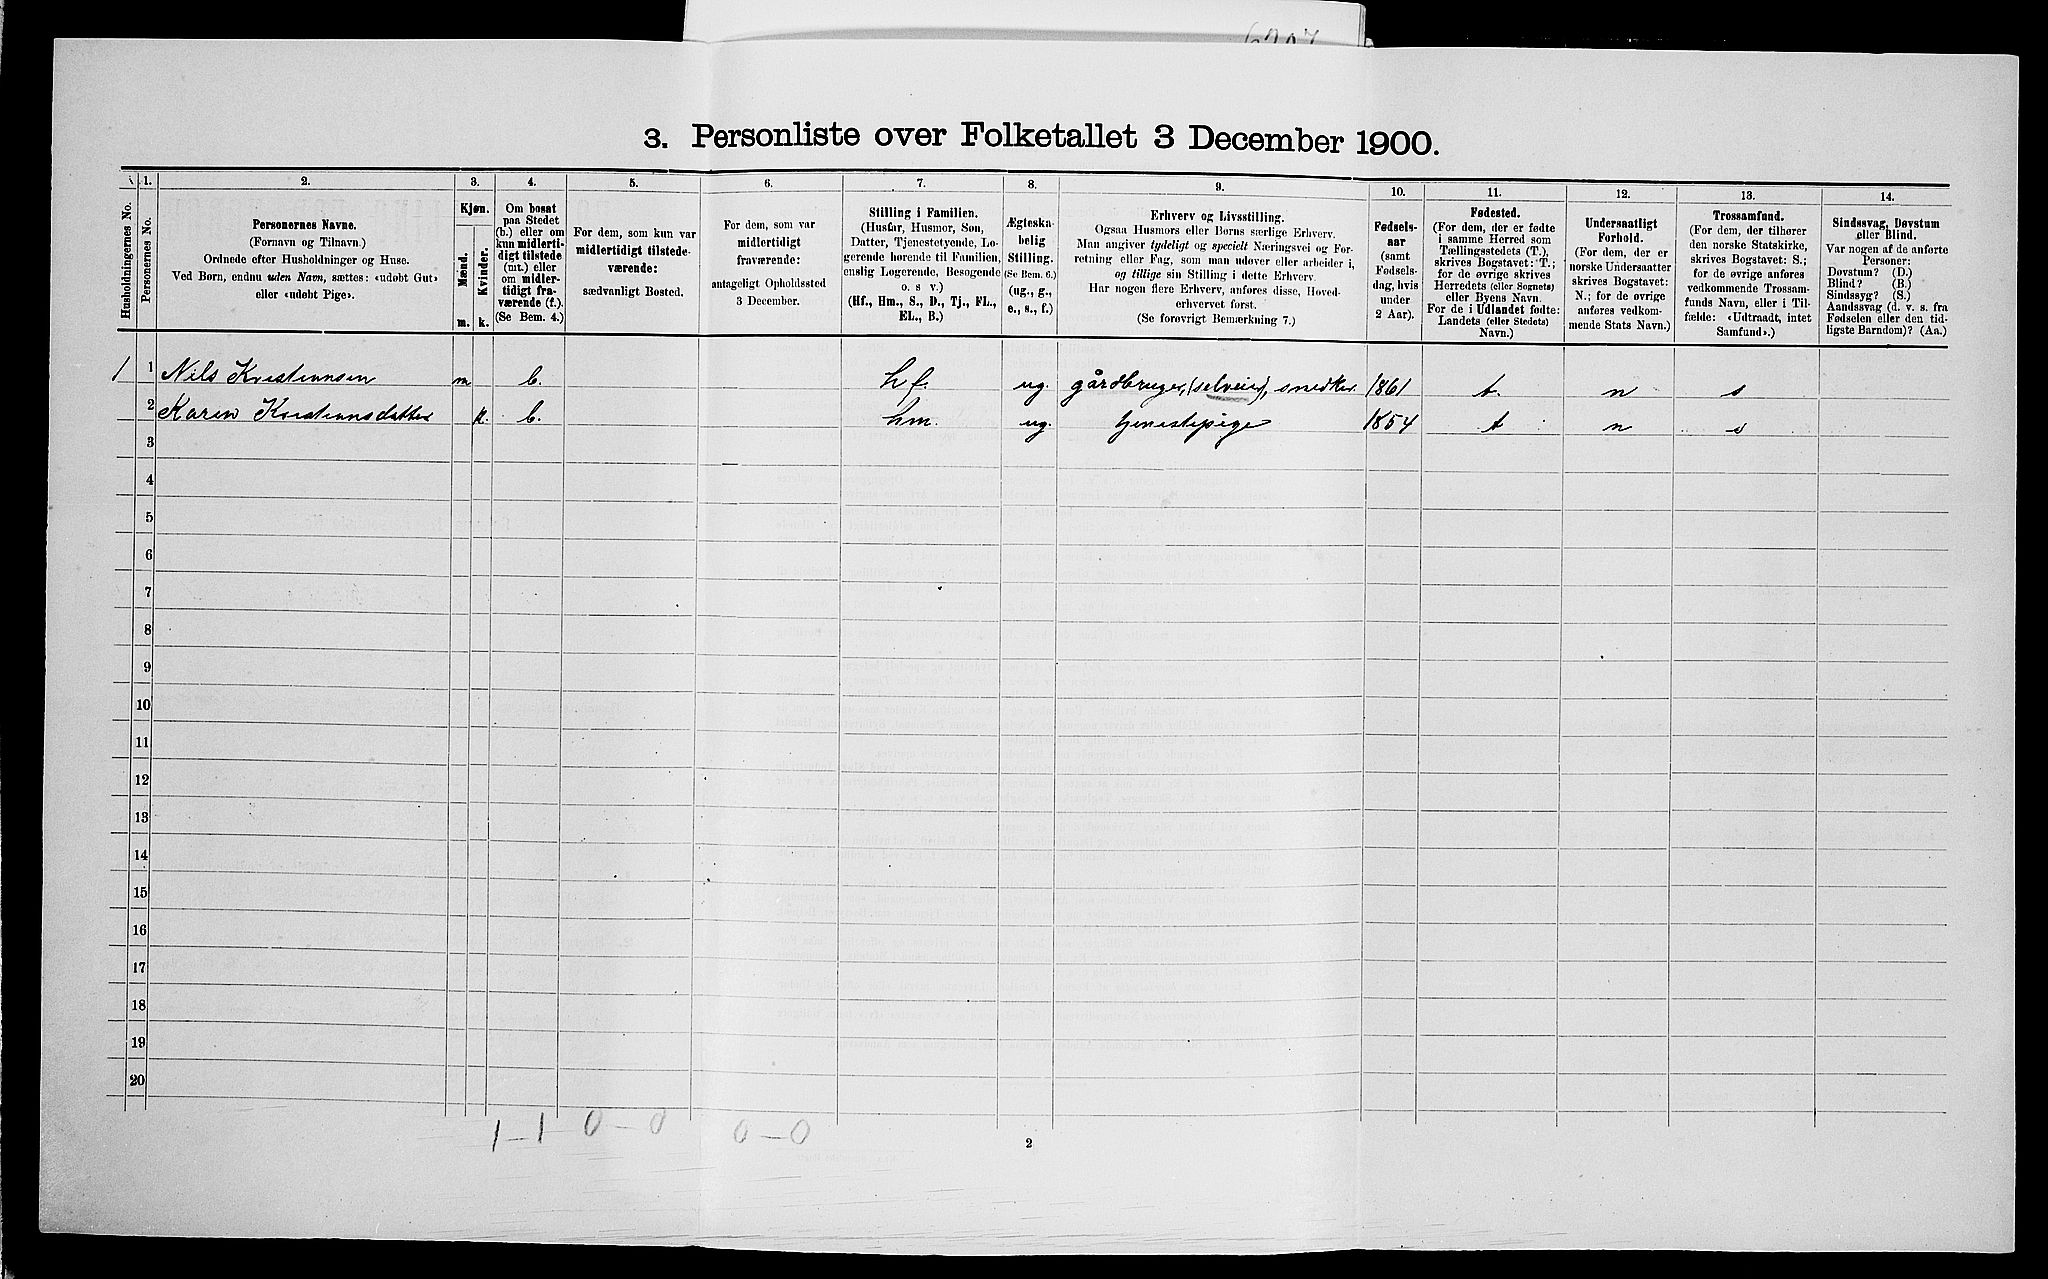 3. Personliste over Folketallet 3 December 1900.
1. 2. 3. 4. 5. 6. 7. 8. 9. 10. 11. 12. 13. 14.
Husholdningernes No.
Personernes No.
Personernes Navne.
(Fornavn og Tilnavn.)
Ordnede efter Husholdninger og Huse.
Ved Børn, endnu uden Navn, sættes: «udøbt Gut»
eller «udøbt Pige».
Kjøn.
Mænd.
Kvinder.
m. k.
Om bosat
paa Stedet
(b.) eller om
kun midlerti-
digt tilstede
(mt.) eller
om midler-
tidigt fra-
værende (f.).
(Se Bem. 4.)
For dem, som kun var
midlertidigt tilstede-
værende:
sædvanligt Bosted.
For dem, som var
midlertidigt
fraværende:
antageligt Opholdssted
3 December.
Stilling i Familien.
(Husfar, Husmor, Søn,
Datter, Tjenestetyende, Lo-
gerende hørende til Familien,
enslig Logerende, Besøgende
o. s v.)
(Hf., Hm., S., D., Tj., FL.,
EL., B.)
Ægteska-
belig
Stilling.
(Se Bem. 6.)
(ug., g.,
e., s., f.)
Erhverv og Livsstilling.
Ogsaa Husmors eller Børns særlige Erhverv.
Man angiver tydeligt og specielt Næringsvei og For-
retning eller Fag, som man udøver eller arbeider i,
og tillige sin Stilling i dette Erhverv.
Har nogen flere Erhverv, anføres disse, Hoved-
erhvervet først.
(Se forøvrigt Bemærkning 7.)
Fødsels-
aar
(samt
Fødsels-
dag, hvis
under
2 Aar).
Fødested.
(For dem, der er fødte
i samme Herred som
Tællingsstedets (T.),
skrives Bogstavet: T.;
for de øvrige skrives
Herredets (eller Sognets)
eller Byens Navn.
For de i Udlandet fødte:
Landets (eller Stedets)
Navn.)
Undersaatligt
Forhold.
(For dem, der er
norske Undersaatter
skrives Bogstavet:
N.; for de øvrige
anføres vedkom-
mende Stats Navn.)
Trossamfund.
(For dem, der tilhører
den norske Statskirke,
skrives Bogstavet: S.;
for de øvrige anføres
vedkommende Trossam-
funds Navn, eller i Til-
fælde: «Udtraadt, intet
Samfund».)
Sindssvag, Døvstum
eller Blind.
Var nogen af de anførte
Personer:
Døvstum? (D.)
Blind? (B.)
Sindssyg? (S.)
Aandssvag (d. v. s. fra
Fødselen eller den tid-
ligste Barndom)? (Aa.)
1 1 Nils Kristiansen m b. hf. ug. gårdbruger, (selveier), snedker 1861 t. n s
2 Karen Kristiansdatter k. b. hm. ug. tjenestepige 1854 t n s
3
4
5
6
7
8
9
10
11
12
13
14
15
16
17
18
19
20
1 – 1 0 – 0 0 – 0
2